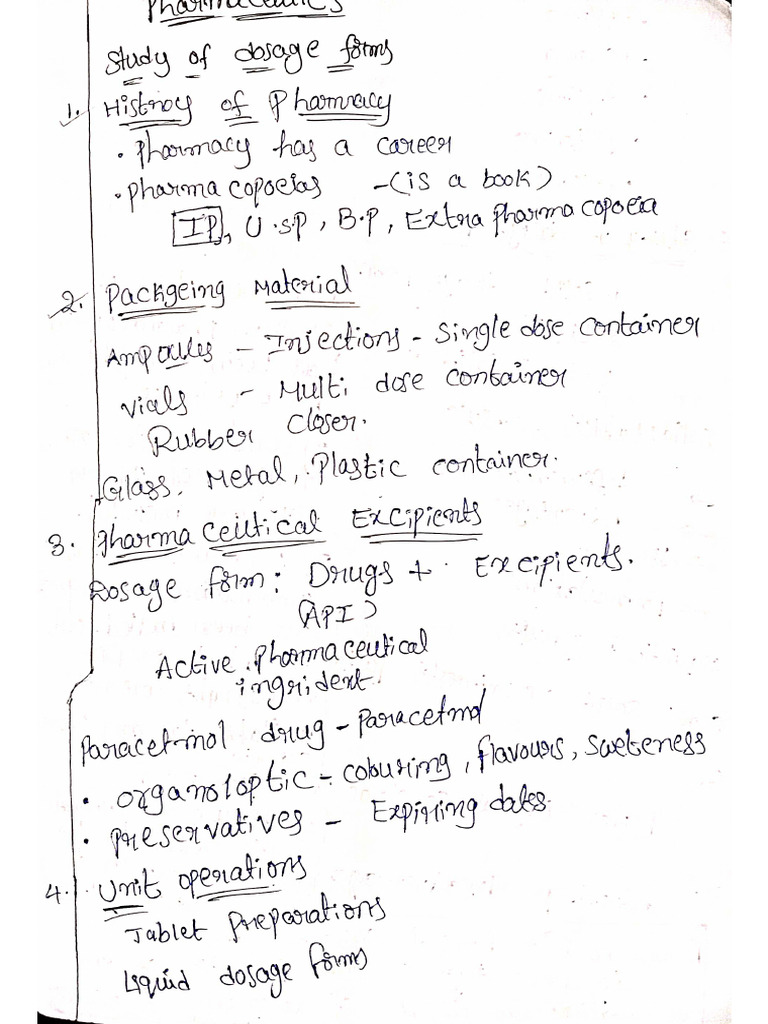 Pharmaceutics
Study of dosage forms
1. Histroy of Pharmracy
. Pharmacy has a career
. Pharma copoeias -(is a book)
IP, U.S.P, B.P, Extra Pharma copoeia
2. Packgeing Material
Ampoules - Injections - Single dose container
Vials - Multi dose container
Rubber closer.
Glass, Metal, Plastic container.
3. Pharma ceutical Excipients
Dosage form: Drugs + Excipients.
(API)
Active Pharmaceutical
ingrident.
Paracetmol drug - Paracetmol
. organoloptic - colouring, flavours, sweteness
. Preservatives - Expiring dates.
4. Unit operations
Tablet preparations
Liquid dosage forms